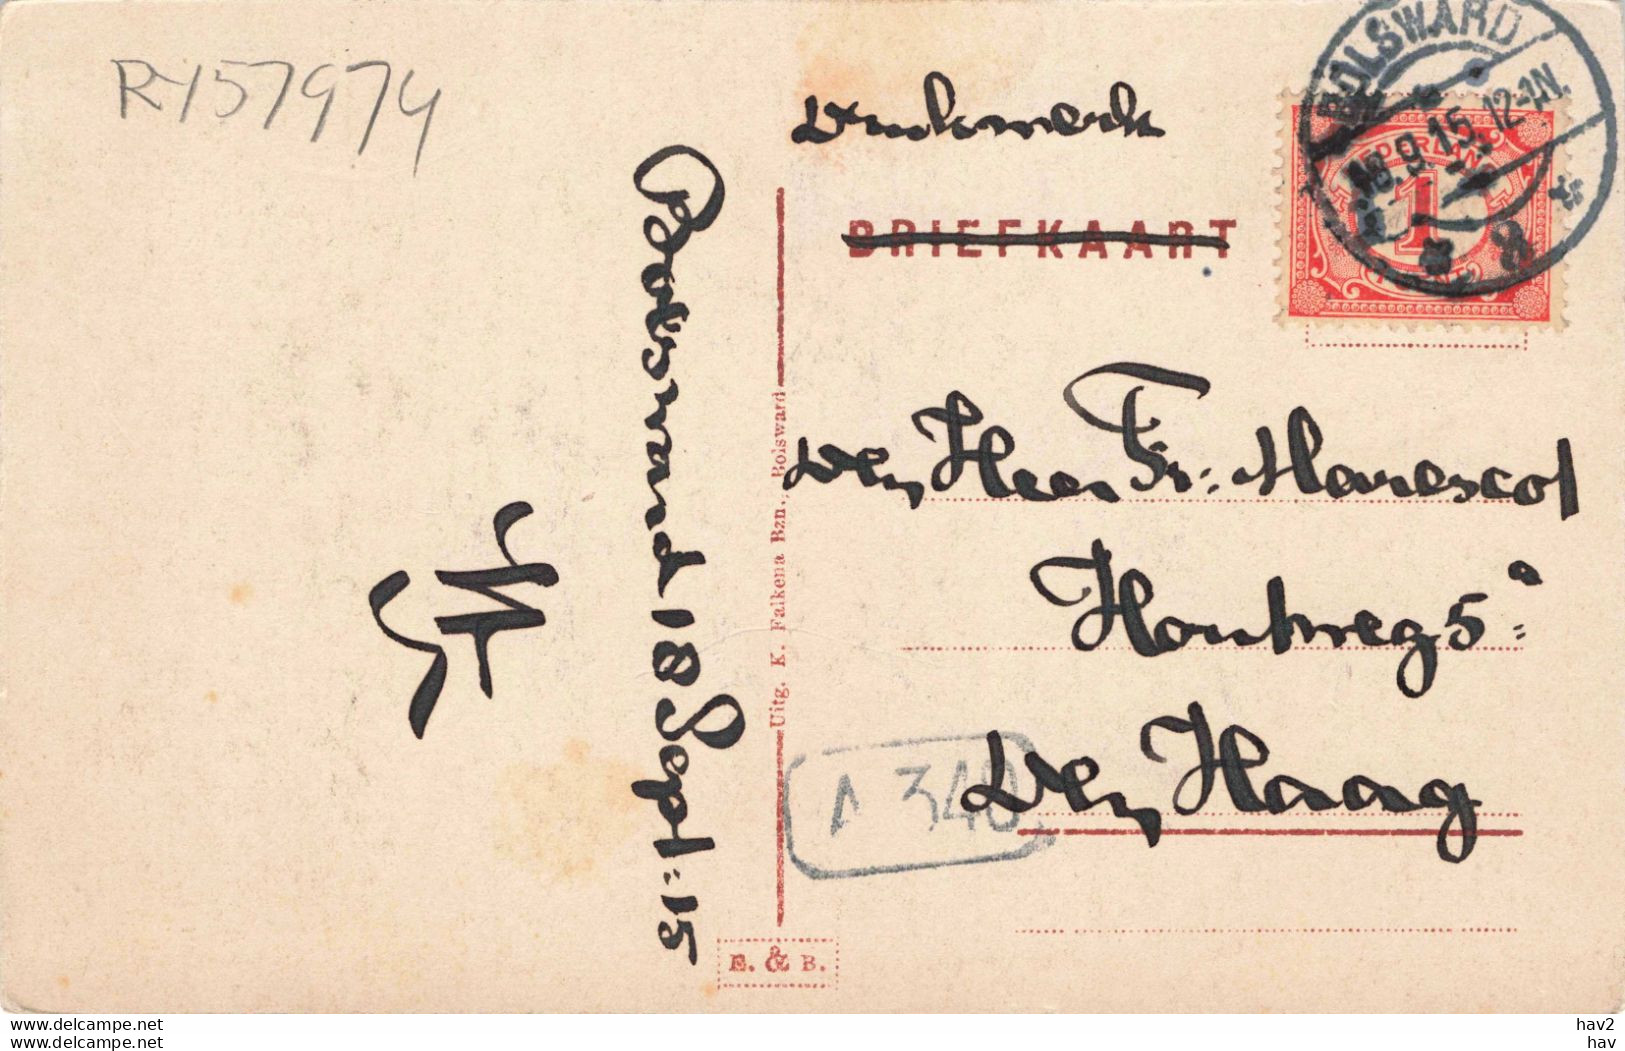 R-157974
Drukwerk
BRIEFKAART
BOLSWARD
18.9.15. 12-1N.
8
NEDERLAND
1
CENT
Den Heer Fr: Marescot
Houtweg 5a
Den Haag
A 340
Bolsward 18 Sept: 15
Uitg. K. Falkena Bzn., Bolsward
E. & B.
delcampe.net
delcampe.net
hav2
hav